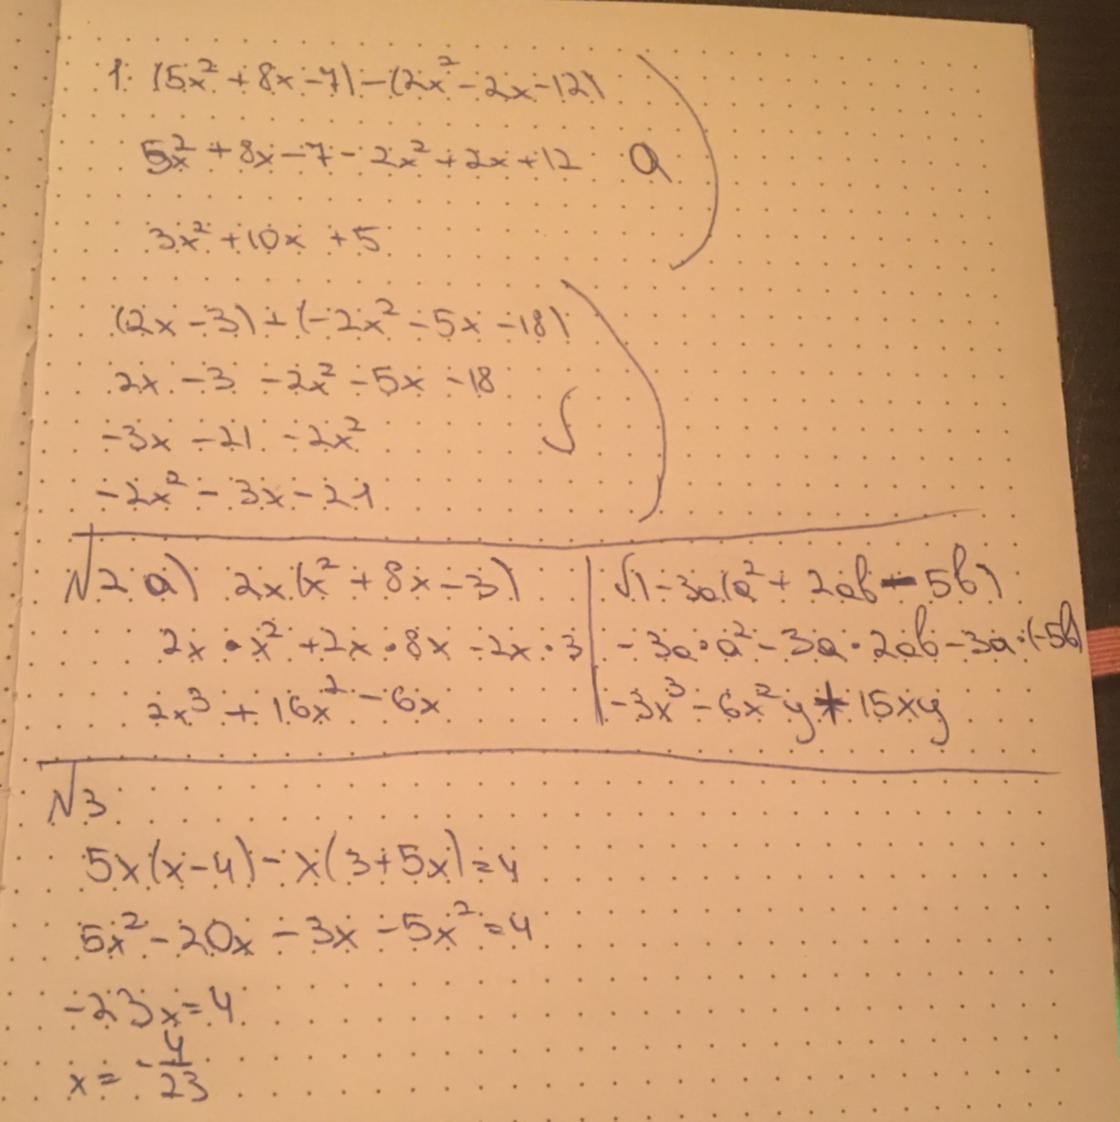 1. (5x² + 8x - 7) - (2x² - 2x - 12)
5x² + 8x - 7 - 2x² + 2x + 12 а)
3x² + 10x + 5
(2x - 3) + (-2x² - 5x - 18)
2x - 3 - 2x² - 5x - 18
-3x - 21 - 2x² б)
-2x² - 3x - 21
№2 а) 2x(x² + 8x - 3)
2x • x² + 2x • 8x - 2x • 3
2x³ + 16x² - 6x
б) -3a(a² + 2ab - 5b)
-3a • a² - 3a • 2ab - 3a • (-5b)
-3x³ - 6x²y + 15xy
№3
5x(x - 4) - x(3 + 5x) = 4
5x² - 20x - 3x - 5x² = 4
-23x = 4
x = -4/23